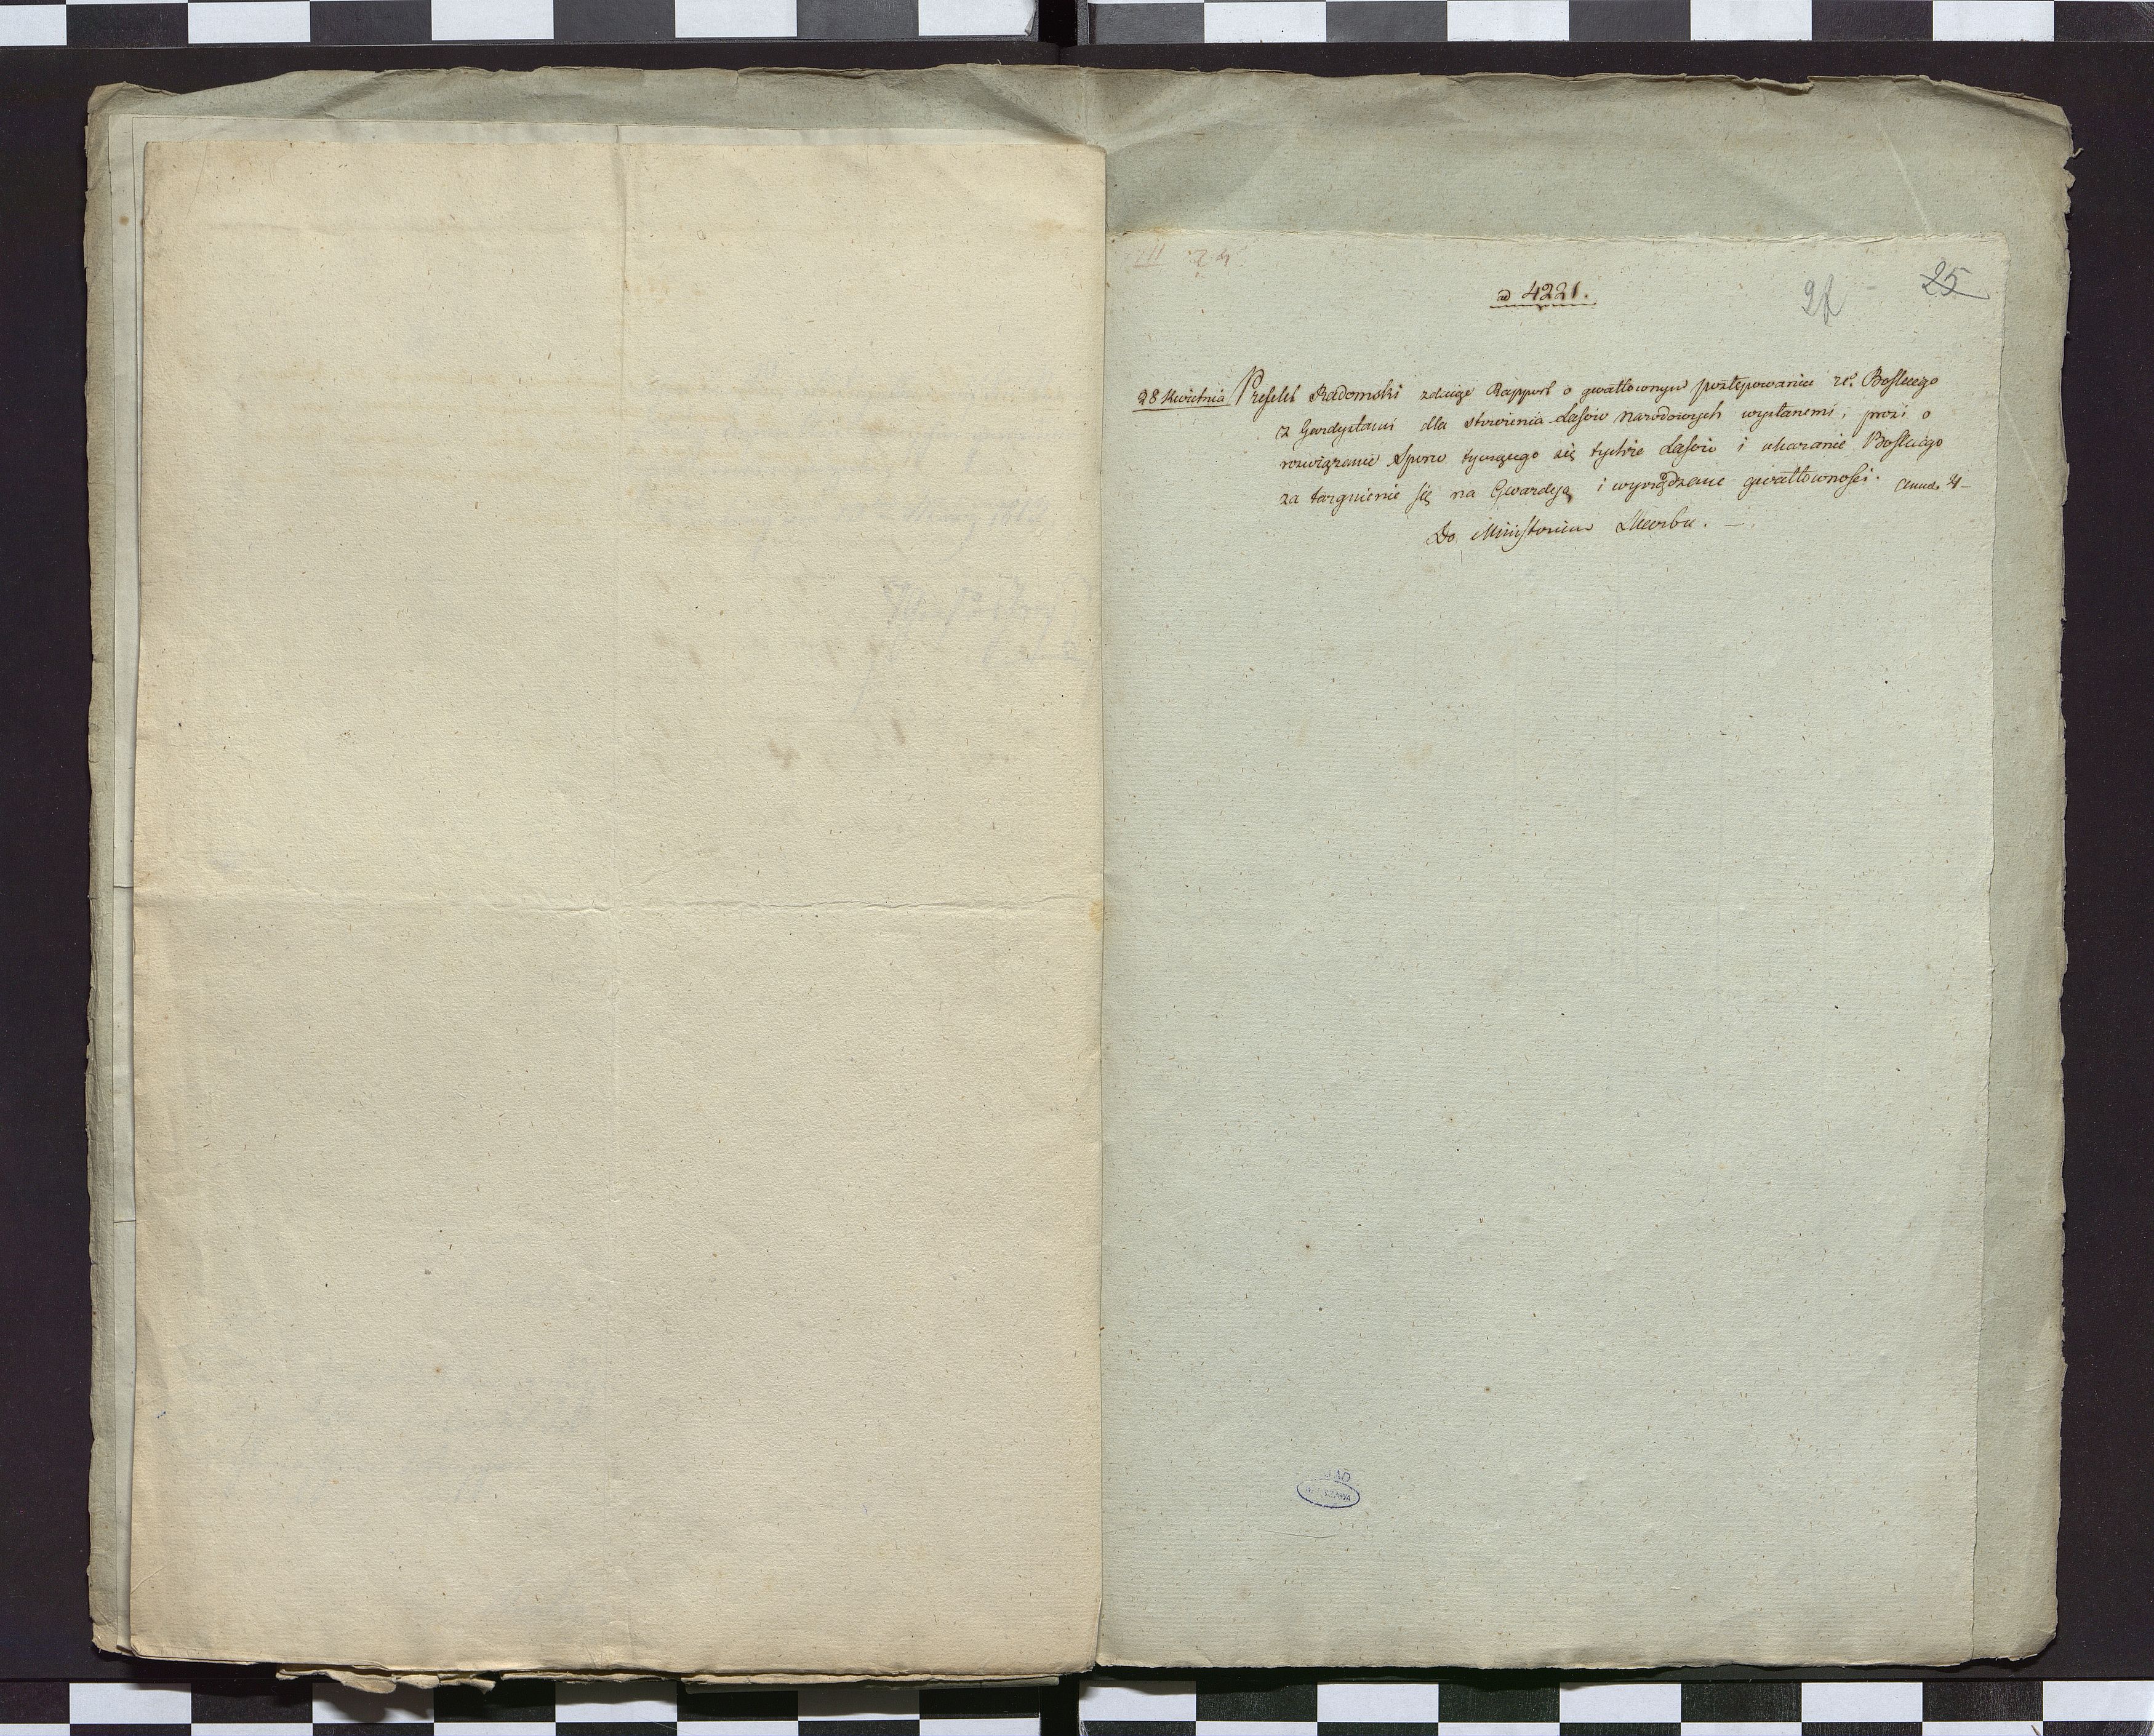 III 24
ad 4221.
25
28 Kwietnia Prefekt Radomski zdaige Rapport o gwałtownym postępowaniu Bosskiego
z Gwardystami dla strzeżenia Lasów Narodowych wysłanemi, prosi o
rozwiązanie Sporu tyczącego się tychże Lasów i ukaranie Bosskiego
za targnienie się na Gwardyą i wyrządzone gwałtowności.
Do Ministerium Skarbu. —
AD